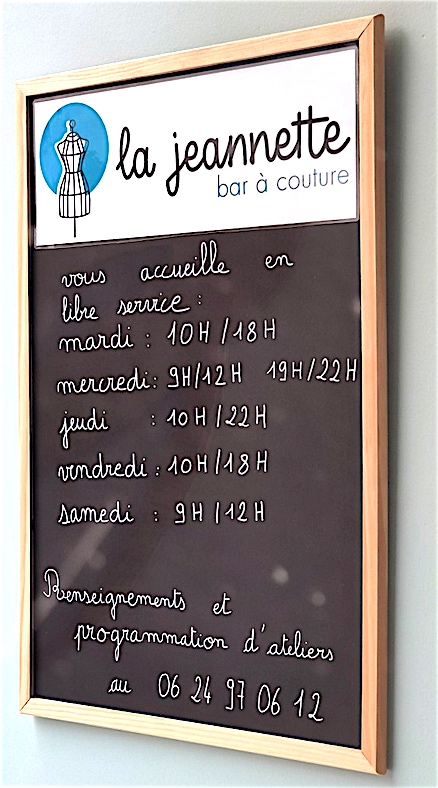 la jeannette
bar à couture
vous accueille en
libre service :
mardi : 10H/18H
mercredi: 9H/12H 19H/22H
jeudi : 10H/22H
vendredi : 10H/18H
samedi : 9H/12H
Renseignements et
programmation d'ateliers
au 06 24 97 06 12